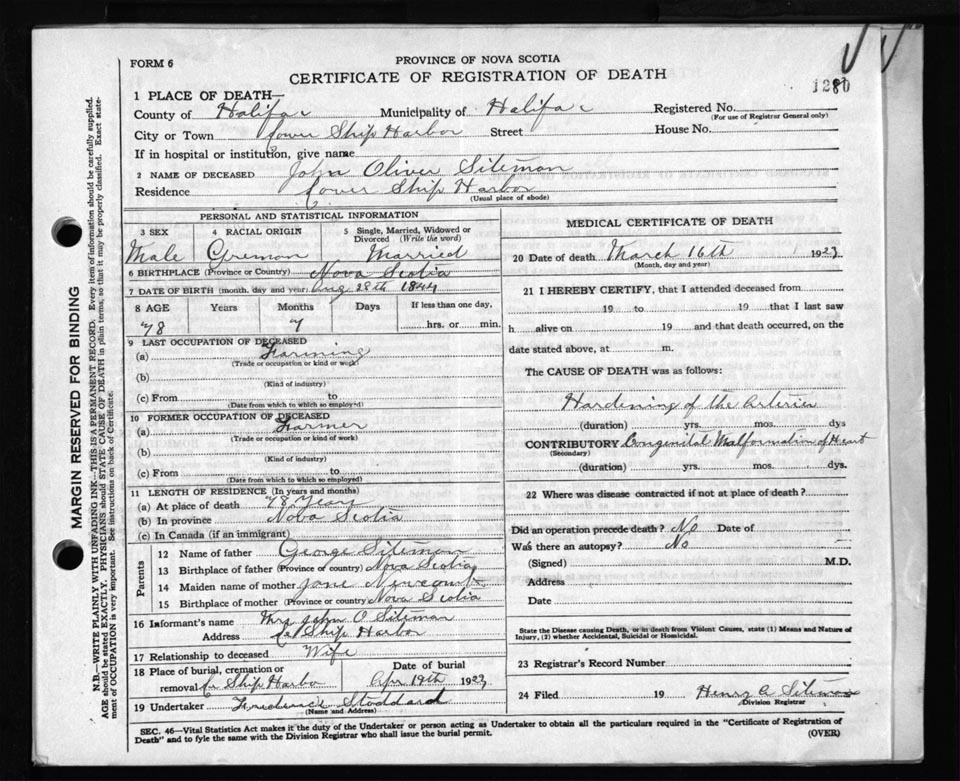 FORM 6
PROVINCE OF NOVA SCOTIA
CERTIFICATE OF REGISTRATION OF DEATH
1280
1 PLACE OF DEATH—
County of Halifax Municipality of Halifax Registered No.
(For use of Registrar General only)
City or Town Lower Ship Harbor Street House No.
If in hospital or institution, give name
2 NAME OF DECEASED John Oliver Siteman
Residence Lower Ship Harbor
(Usual place of abode)
PERSONAL AND STATISTICAL INFORMATION
3 SEX 4 RACIAL ORIGIN 5 Single, Married, Widowed or Divorced (Write the word)
Male Married
6 BIRTHPLACE (Province or Country) Nova Scotia
7 DATE OF BIRTH (month, day and year) Aug 28th 1844
8 AGE Years Months Days If less than one day,
78 7 hrs. or min.
9 LAST OCCUPATION OF DECEASED
(a) Farming
(Trade or occupation or kind or work)
(b)
(Kind of industry)
(c) From to
(Date from which to which so employed)
10 FORMER OCCUPATION OF DECEASED
(a) Farmer
(Trade or occupation or kind of work)
(b)
(Kind of industry)
(c) From to
(Date from which to which so employed)
11 LENGTH OF RESIDENCE (In years and months)
(a) At place of death 78 Years
(b) In province Nova Scotia
(c) In Canada (if an immigrant)
Parents
12 Name of father George Siteman
13 Birthplace of father (Province or country) Nova Scotia
14 Maiden name of mother Jane Newcomb
15 Birthplace of mother (Province or country) Nova Scotia
16 Informant's name Mrs John O Siteman
Address Ship Harbor
17 Relationship to deceased Wife
18 Place of burial, cremation or removal Ship Harbo Date of burial Apr 19th 1923
19 Undertaker Frederick Stoddard
(Name and Address)
MEDICAL CERTIFICATE OF DEATH
20 Date of death March 16th 1923
(Month, day and year)
21 I HEREBY CERTIFY, that I attended deceased from
19 to 19 that I last saw
h alive on 19 and that death occurred, on the
date stated above, at m.
The CAUSE OF DEATH was as follows:
Hardening of the Arteries
(duration) yrs. mos. dys
CONTRIBUTORY Congenital Malformation of Heart
(Secondary)
(duration) yrs. mos. dys.
22 Where was disease contracted if not at place of death?
Did an operation precede death? No Date of
Was there an autopsy? No
(Signed) M.D.
Address
Date
State the Disease causing Death, or in death from Violent Causes, state (1) Means and Nature of
Injury, (2) whether Accidental, Suicidal or Homicidal.
23 Registrar's Record Number
24 Filed 19 Henry A Siteman
Division Registrar
SEC. 46—Vital Statistics Act makes it the duty of the Undertaker or person acting as Undertaker to obtain all the particulars required in the "Certificate of Registration of
Death" and to fyle the same with the Division Registrar who shall issue the burial permit.
(OVER)
MARGIN RESERVED FOR BINDING
N.B.—WRITE PLAINLY WITH UNFADING INK—THIS IS A PERMANENT RECORD. Every item of information should be carefully supplied.
AGE should be stated EXACTLY. PHYSICIANS should STATE CAUSE OF DEATH in plain terms, so that it may be properly classified. Exact state-
ment of OCCUPATION is very important. See instructions on back of Certificate.